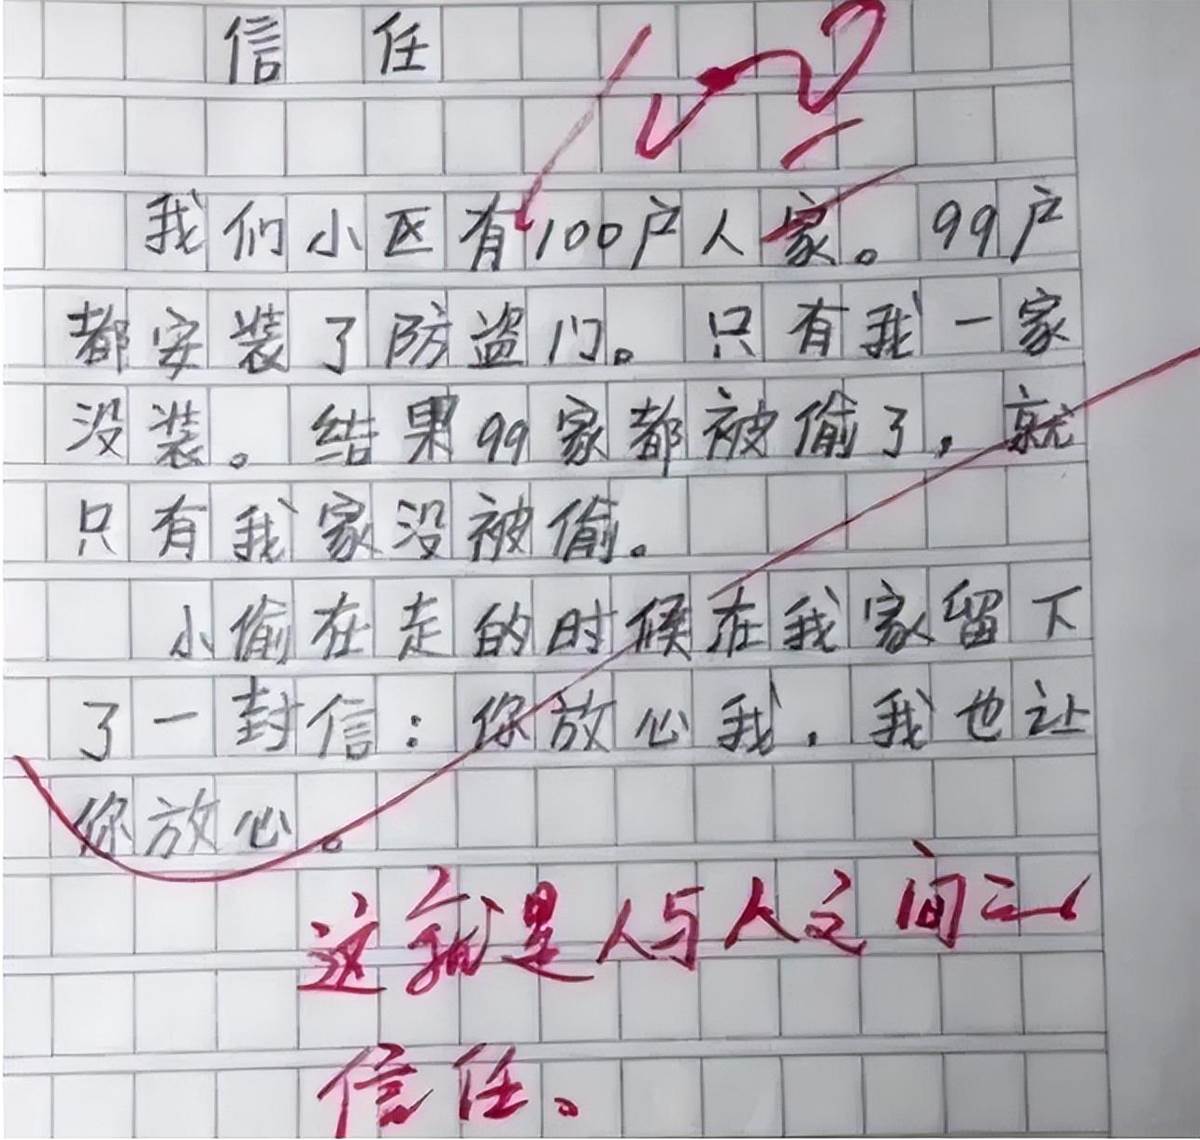 信任
我们小区有100户人家。99户
都安装了防盗门。只有我一家
没装。结果99家都被偷了，就
只有我家没被偷。
小偷在走的时候在我家留下
了一封信：你放心我，我也让
你放心。
这就是人与人之间
信任。